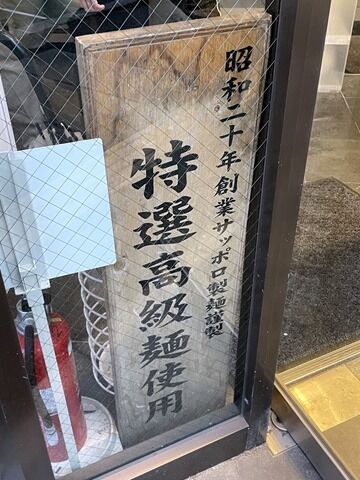 昭和二十年創業サッポロ製麺謹製
特選高級麺使用